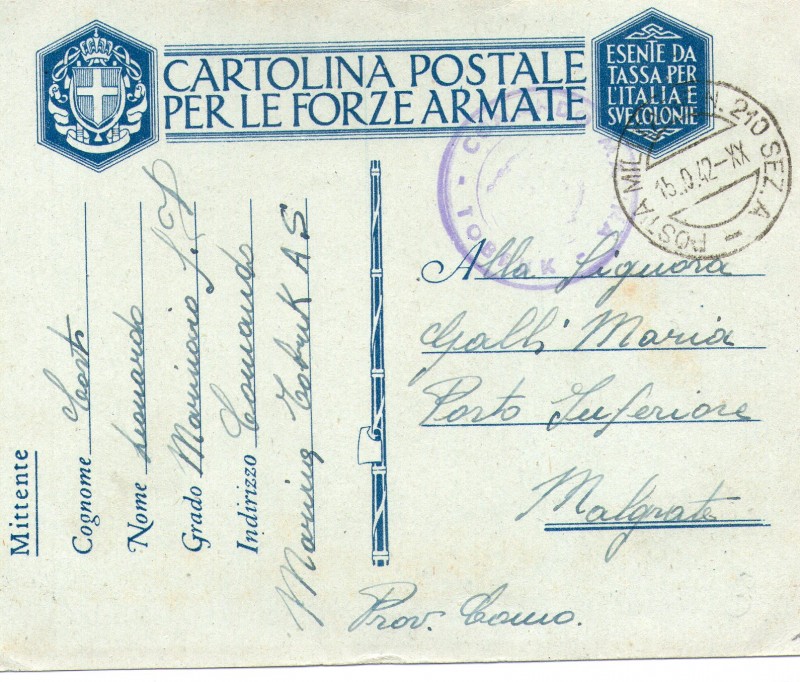 CARTOLINA POSTALE
PER LE FORZE ARMATE
ESENTE DA
TASSA PER
L'ITALIA E
SVE COLONIE
POSTA MILITARE N. 210 SEZ. A
15.0.42-XX
COMANDO MARINA
TOBRUK
Mittente
Cognome Costi
Nome Leonardo
Grado Marinaio S.V.
Indirizzo Comando
Marina Tobruk A S
Alla Signora
Galli Maria
Porto Inferiore
Malgrate
Prov. Como.